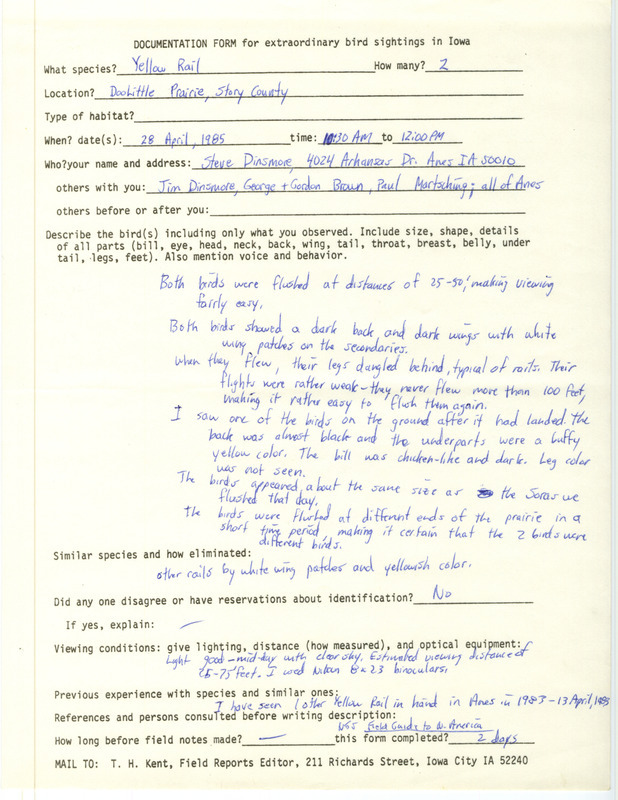 DOCUMENTATION FORM for extraordinary bird sightings in Iowa
What species? Yellow Rail How many? 2
Location? DooLittle Prairie, Story County
Type of habitat?
When? date(s): 28 April, 1985 time: 10:30 AM to 12:00 PM
Who?your name and address: Steve Dinsmore, 4024 Arkansas Dr. Ames IA 50010
others with you: Jim Dinsmore, George + Gordon Brown, Paul Martsching; all of Ames
others before or after you:
Describe the bird(s) including only what you observed. Include size, shape, details
of all parts (bill, eye, head, neck, back, wing, tail, throat, breast, belly, under
tail, legs, feet). Also mention voice and behavior.
Both birds were flushed at distances of 25-50', making viewing
fairly easy.
Both birds showed a dark back and dark wings with white
wing patches on the secondaries.
When they flew, their legs dangled behind, typical of rails. Their
flights were rather weak - they never flew more than 100 feet,
making it rather easy to flush them again.
I saw one of the birds on the ground after it had landed. The
back was almost black and the underparts were a buffy
yellow color. The bill was chicken-like and dark. Leg color
was not seen.
The birds appeared about the same size as the Soras we
flushed that day.
The birds were flushed at different ends of the prairie in a
short time period making it certain that the 2 birds were
different birds.
Similar species and how eliminated:
other rails by white wing patches and yellowish color.
Did any one disagree or have reservations about identification? No
If yes, explain: —
Viewing conditions: give lighting, distance (how measured), and optical equipment:
Light good - mid-day with clear sky. Estimated viewing distance of
25-75 feet. I used Nikon 8x23 binoculars.
Previous experience with species and similar ones:
I have seen 1 other Yellow Rail in hand in Ames in 1983 - 13 April, 1985
References and persons consulted before writing description:
NGS Field Guide to N. America
How long before field notes made? — this form completed? 2 days
MAIL TO: T. H. Kent, Field Reports Editor, 211 Richards Street, Iowa City IA 52240